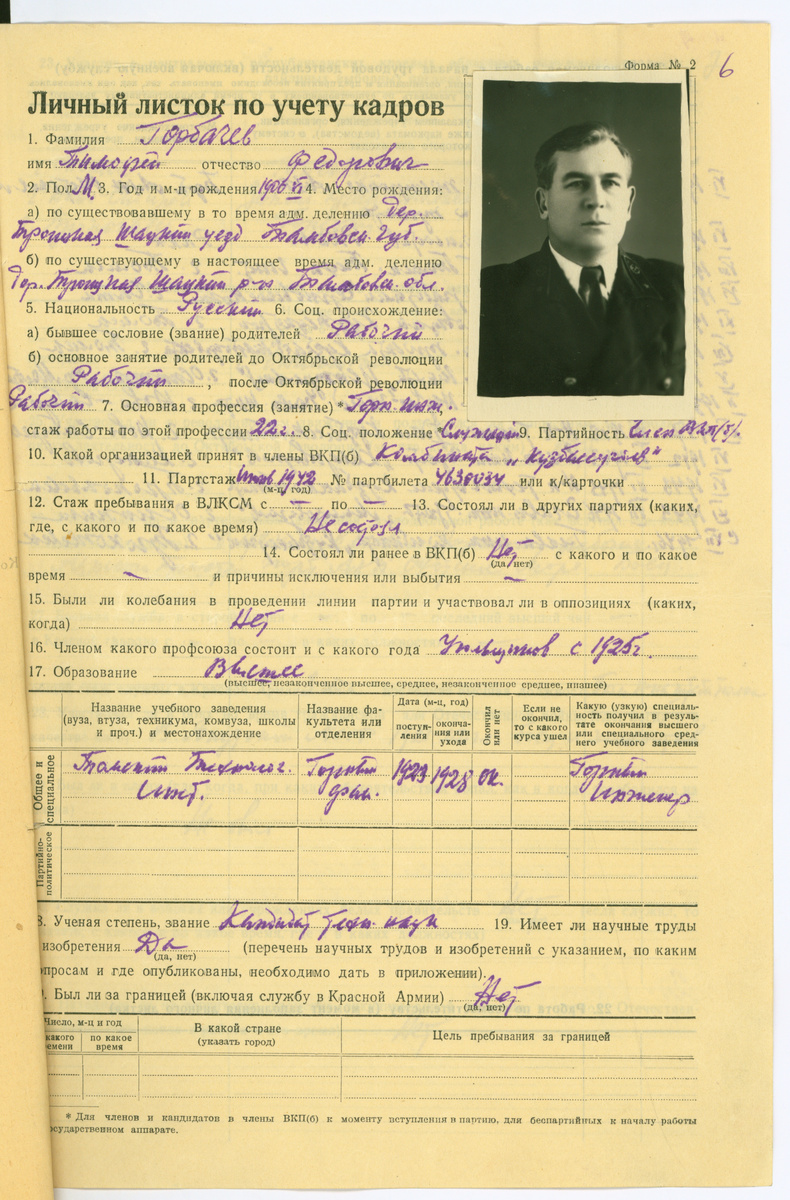 Форма № 2
6
Личный листок по учету кадров
1. Фамилия Горбачев
имя Тимофей отчество Федорович
2. Пол М. 3. Год и м-ц рождения 1900 VI 4. Место рождения:
а) по существовавшему в то время адм. делению Дер.
Троицкая Шацкий уезд Тамбовск. губ.
б) по существующему в настоящее время адм. делению
Дер. Троицкая Шацкий р-н Тамбовск. обл.
5. Национальность Русский 6. Соц. происхождение:
а) бывшее сословие (звание) родителей Рабочий
б) основное занятие родителей до Октябрьской революции
Рабочий, после Октябрьской революции
Рабочий 7. Основная профессия (занятие)* Горн. инж.,
стаж работы по этой профессии 22 г. 8. Соц. положение* Служащий 9. Партийность член ВКП(б).
10. Какой организацией принят в члены ВКП(б) Комбината „Кузбассуголь"
11. Партстаж 1942 № партбилета 4630034 или к/карточки
(м-ц, год)
12. Стаж пребывания в ВЛКСМ с — по — 13. Состоял ли в других партиях (каких,
где, с какого и по какое время) Не состоял
14. Состоял ли ранее в ВКП(б) Нет с какого и по какое
(да, нет)
время — и причины исключения или выбытия —
15. Были ли колебания в проведении линии партии и участвовал ли в оппозициях (каких,
когда) Нет
16. Членом какого профсоюза состоит и с какого года Угольщиков с 1925 г.
17. Образование Высшее
(высшее, незаконченное высшее, среднее, незаконченное среднее, низшее)
Название учебного заведения (вуза, втуза, техникума, комвуза, школы и проч.) и местонахождение
Название факультета или отделения
Дата (м-ц, год)
поступления
окончания или ухода
Окончил или нет
Если не окончил, то с какого курса ушел
Какую (узкую) специальность получил в результате окончания высшего или специального среднего учебного заведения
Общее и специальное
Томский Технолог. Инст.
Горный фак.
1923
1928
ок.
Горный Инженер
Партийно-политическое
8. Ученая степень, звание Кандидат техн. наук 19. Имеет ли научные труды
изобретения Да (перечень научных трудов и изобретений с указанием, по каким
(да, нет)
опросам и где опубликованы, необходимо дать в приложении).
. Был ли за границей (включая службу в Красной Армии) Нет
(да, нет)
Число, м-ц и год
какого емени
по какое время
В какой стране
(указать город)
Цель пребывания за границей
* Для членов и кандидатов в члены ВКП(б) к моменту вступления в партию, для беспартийных к началу работы
осударственном аппарате.